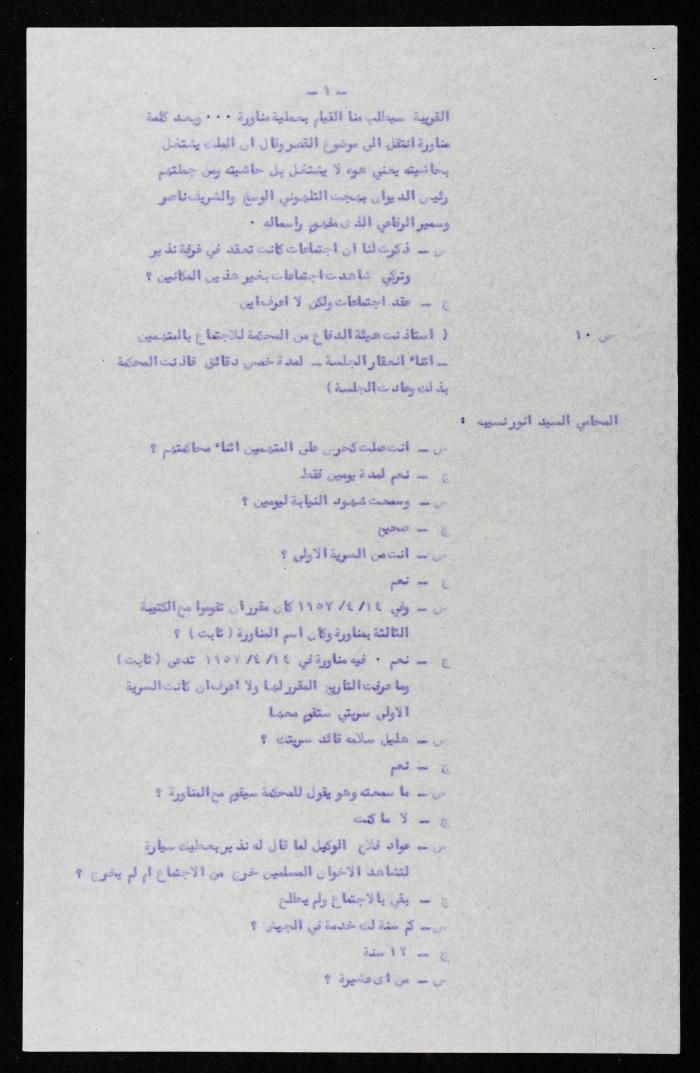 - ١ -
القريبة سيطلب منا القيام بعملية مناورة ٠٠٠ وبعد كلمة
مناورة انتقل الى موضوع القصر وقال ان الملك يشتغل
بحاشيته يعني هوه لا يشتغل بل حاشيته ومن جملتهم
رئيس الديوان بهجت التلهوني الوسخ والشريف ناصر
وسمير الرفاعي الذى مفهوم راسماله ٠
س - ذكرت لنا ان اجتماعات كانت تعقد في غرفة نذير
وتركي شاهدت اجتماعات بغير هذين المكانين ؟
ج - عقد اجتماعات ولكن لا اعرف اين
ص ١٠
( استاذنت هيئة الدفاع من المحكمة للاجتماع بالمتهمين
- اثناء انعقار الجلسة - لمدة خمس دقائق فاذنت المحكمة
بذلك وعادت الجلسة )
المحامي السيد انور نسيبه :
س - انت عملت كحرس على المتهمين اثناء محاكمتهم ؟
ج - نعم لمدة يومين فقط
س - وسمعت شهود النيابة ليومين ؟
ج - صحيح
س - انت من السرية الاولى ؟
ج - نعم
س - وفي ١٩٥٧/٤/١٤ كان مقرر ان تقوموا مع الكتيبة
الثالثة بمناورة وكان اسم المناورة ( ثابت ) ؟
ج - نعم ٠ فيه مناورة في ١٩٥٧/٤/١٤ تدعى ( ثابت )
وما عرفت التاريخ المقرر لها ولا اعرف ان كانت السرية
الاولى سريتي ستقوم معها
س - هليل سلامه قائد سريتك ؟
ج - نعم
س - ما سمعته وهو يقول للمحكمة سيقوم مع المناورة ؟
ج - لا ما كنت
س - عواد فلاح الوكيل لما قال له نذير بعطيك سيارة
لتشاهد الاخوان المسلمين خرج من الاجتماع ام لم يخرج ؟
ج - بقي بالاجتماع ولم يطلع
س - كم سنة لك خدمة في الجيش ؟
ج - ١٢ سنة
س - من اى عشيرة ؟